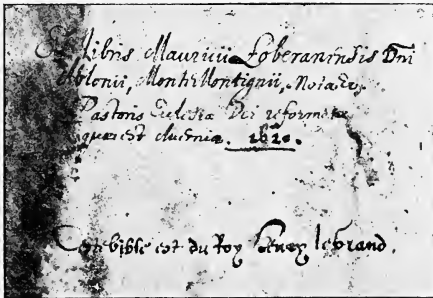 Ex libris Mauricii Loberanensis Dni
Ablonii, Montis Montignii,
Pastoris Eclesiæ Dei reformatæ
quæ est 1620.
Cete bible est du Roy henry le grand.